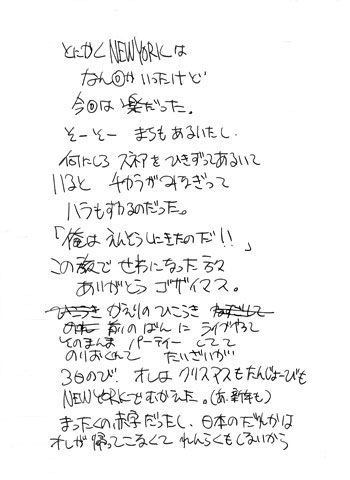 とにかくNEWYORKは
なん回かいったけど
今回は楽だった。
そーそー まちもあるいたし、
何にしろ スネアをひきずってあるいて
いると チカラがみなぎって
ハラもすわるのだった。
「俺は えんそうしにきたのだ!!」
この旅で せわになった方々
ありがとう ゴザイマス。
ひこうき かえりのひこうき
前のばんに ライブやって
そのまんま パーティーしてて
のりおくれて たいざいが
3日のび、オレは クリスマスもたんじょーびも
NEWYORKでむかえた。(あ、新年も)
まったくの赤字だったし、日本のだれかは
オレが帰ってこなくて れんらくもしないから